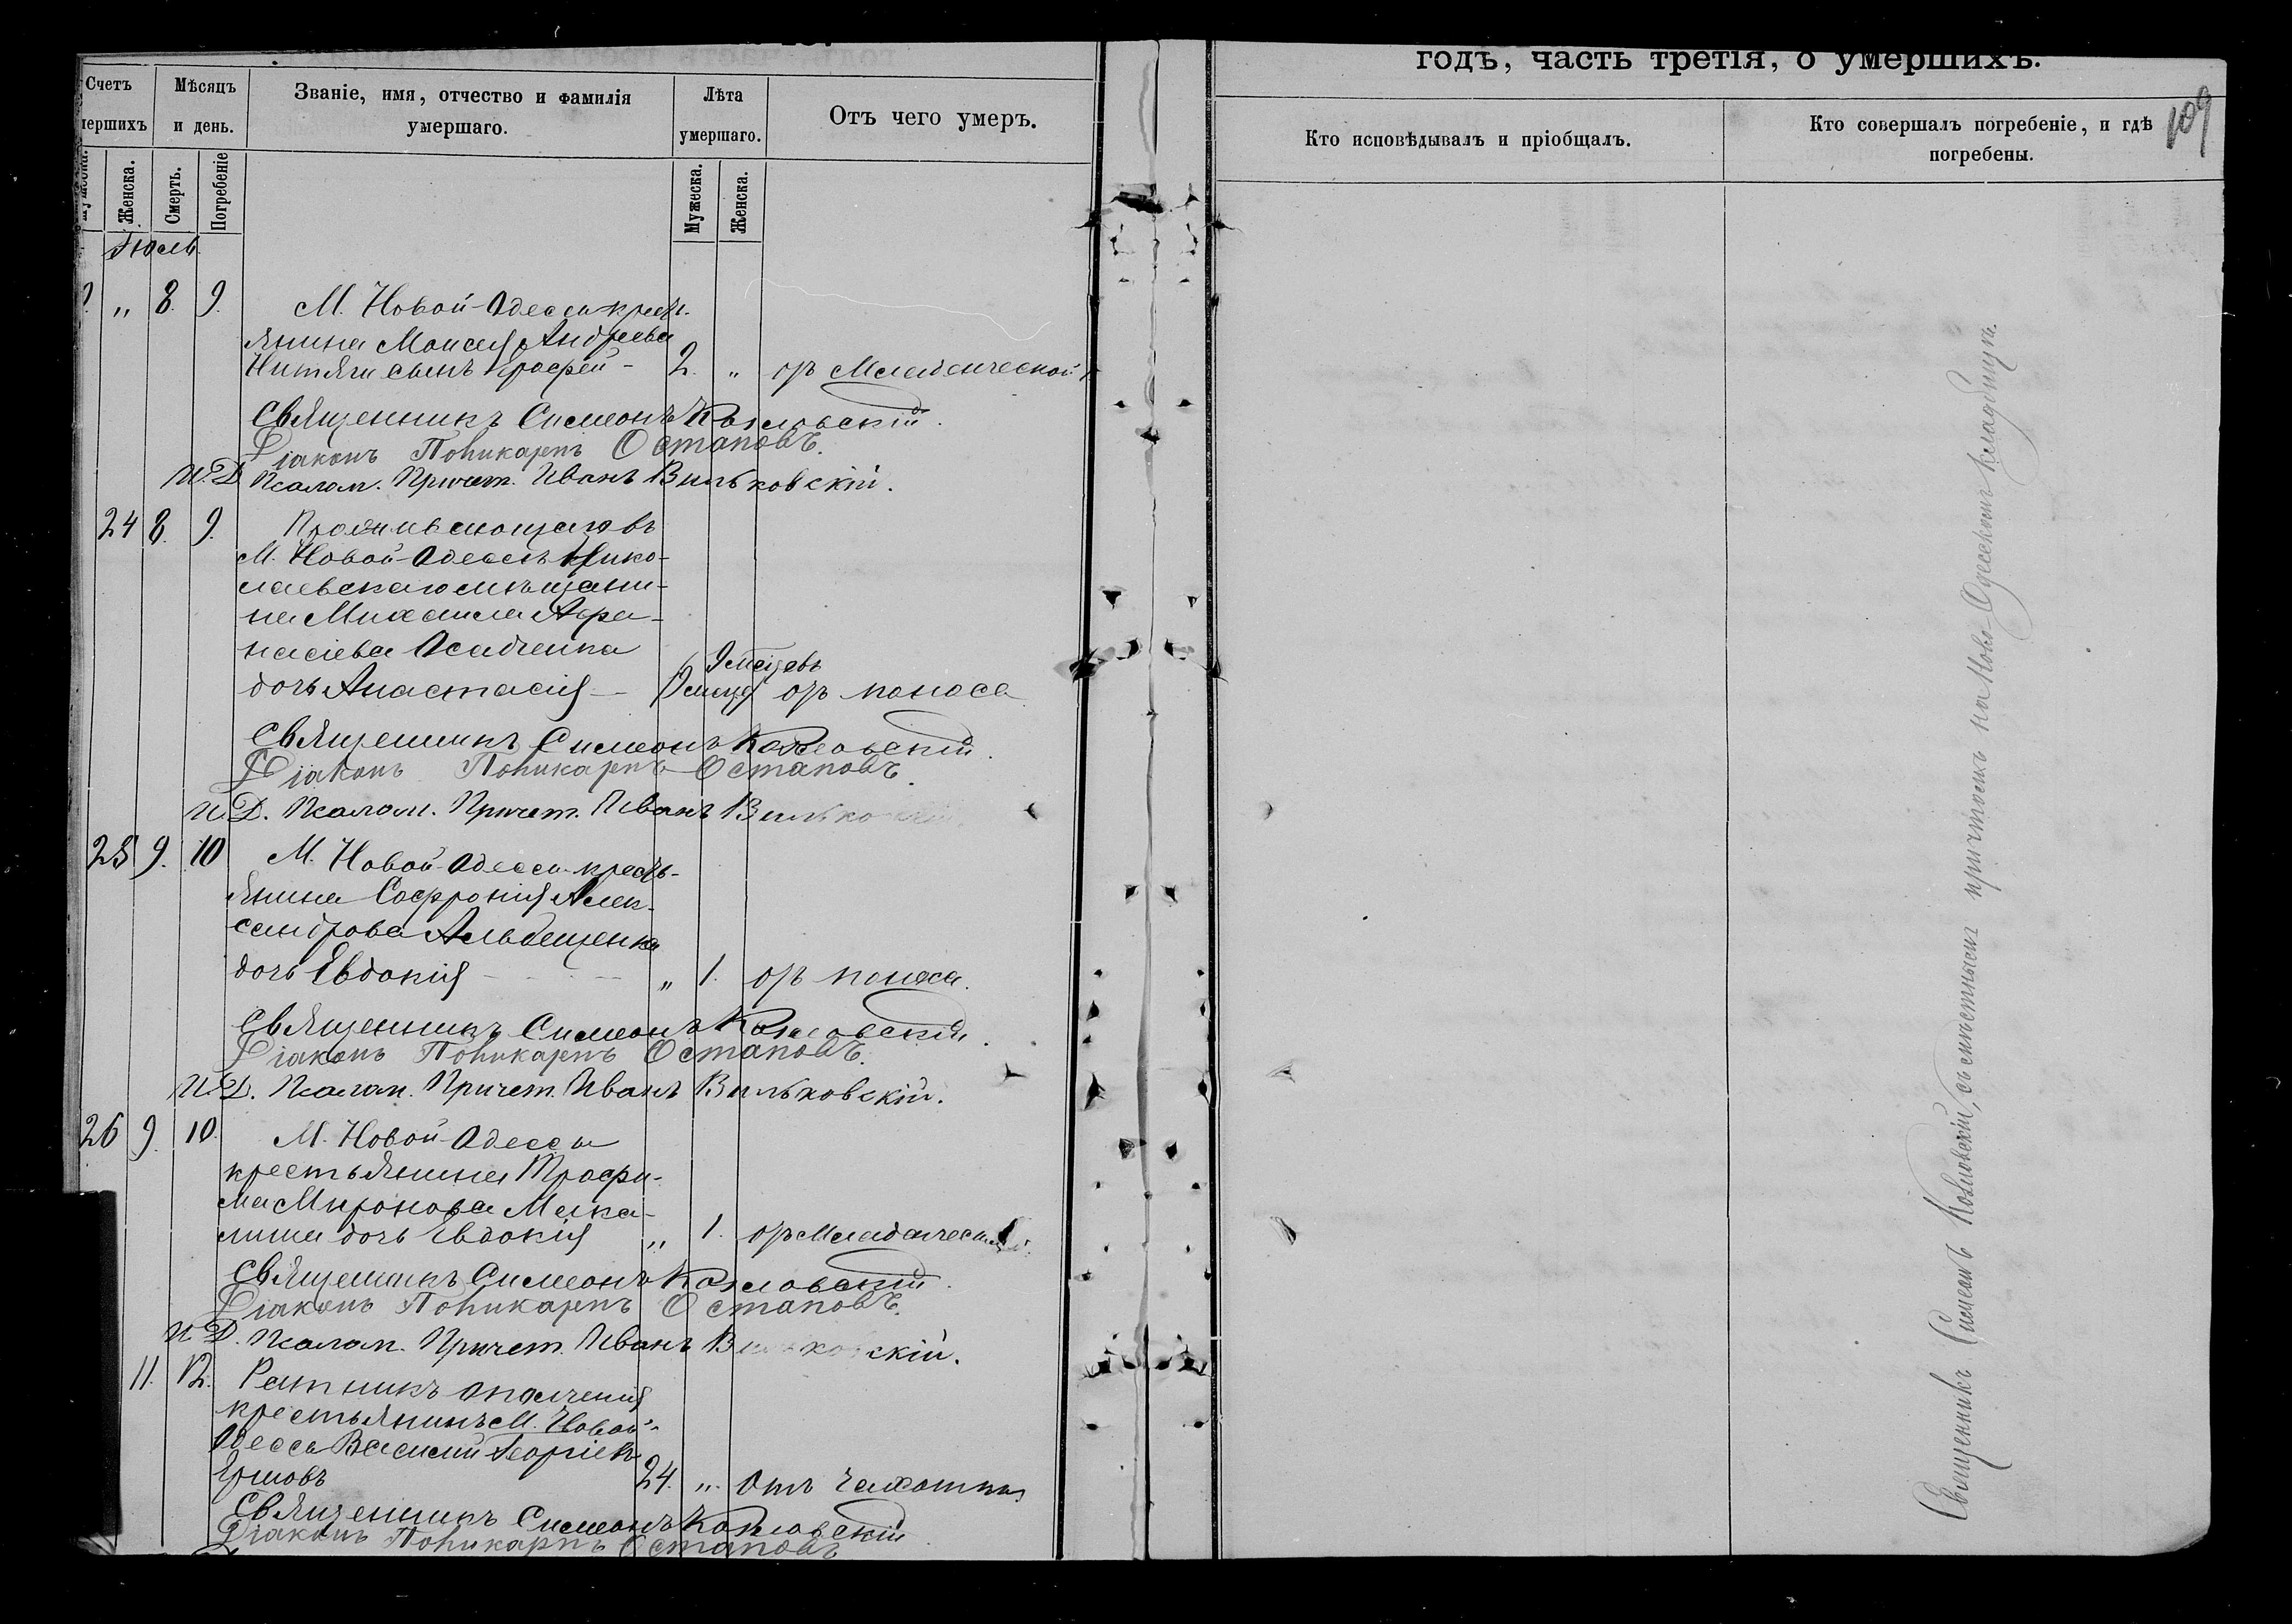 годъ, часть третія, о умершихъ.
109
Счетъ
мершихъ
Мѣсяцъ
и день.
Званіе, имя, отчество и фамилія
умершаго.
Лѣта
умершаго.
Отъ чего умеръ.
Кто исповѣдывалъ и пріобщалъ.
Кто совершалъ погребеніе, и гдѣ
погребены.
Женска.
Смерть.
Погребеніе
Мужеска.
Женска.
Іюль.
„ 8. 9. М. Новой-Одессы крестъ-
янина Моисея Андреева
сынъ 2. „ отъ Младенческой
Священникъ Симеонъ Козловскій.
Діаконъ Поликарпъ Остаповъ.
И. Д. Псалом. Причет. Иванъ Вильковскій.
24 8. 9. Проживающаго въ
М. Новой-Одессѣ Нико-
лаевскаго мѣщани-
на Михаила Афа-
насіева Осадченка
9 месяцевъ
дочь Анастасія отъ поноса
Священникъ Симеонъ Козловскій.
Діаконъ Поликарпъ Остаповъ.
И. Д. Псалом. Причет. Иванъ Вильковскій.
25 9. 10 М. Новой-Одессы кресть-
янина Софронія Алек-
сандрова
дочь Евдокія „ 1. отъ поноса.
Священникъ Симеонъ Козловскій.
Діаконъ Поликарпъ Остаповъ.
И. Д. Псалом. Причет. Иванъ Вильковскій.
26 9. 10. М. Новой-Одессы
крестьянина Трофи-
ма Миронова Мака-
дочь Евдокія „ 1. отъ Младенческой.
Священникъ Симеонъ Козловскій.
Діаконъ Поликарпъ Остаповъ.
И. Д. Псалом. Причет. Иванъ Вильковскій.
11. 12. Ратникъ ополченія
крестьянинъ М. Новой-
Одессы Василій Георгіевъ
Ершовъ 24. „ Отъ чахотки
Священникъ Симеонъ Козловскій
Діаконъ Поликарпъ Остаповъ
Священникъ Симеонъ Козловскій, съ причтомъ на Ново-Одесскомъ кладбищѣ.